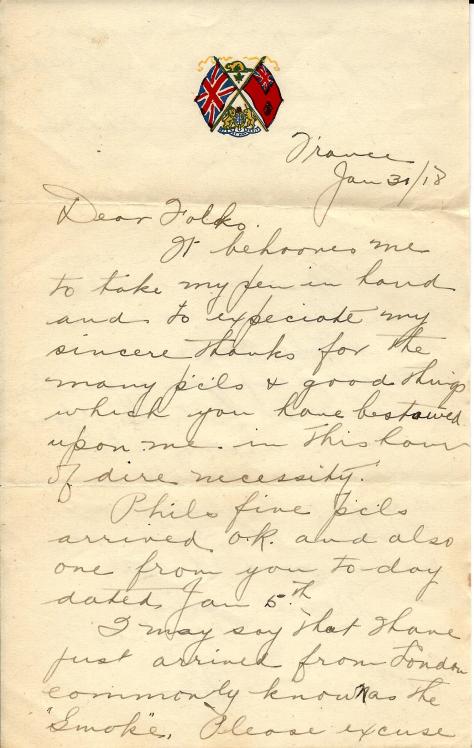 France
Jan 31/18
Dear Folks.
It behooves me
to take my pen in hand
and to expeciate my
sincere thanks for the
many pcls & good things
which you have bestowed
upon me in this hour
of dire necessity.
Phils five pcls
arrived O.K. and also
one from you to-day
dated Jan 5th
I may say that I have
just arrived from London
commonly known as the
"Smoke". Please excuse